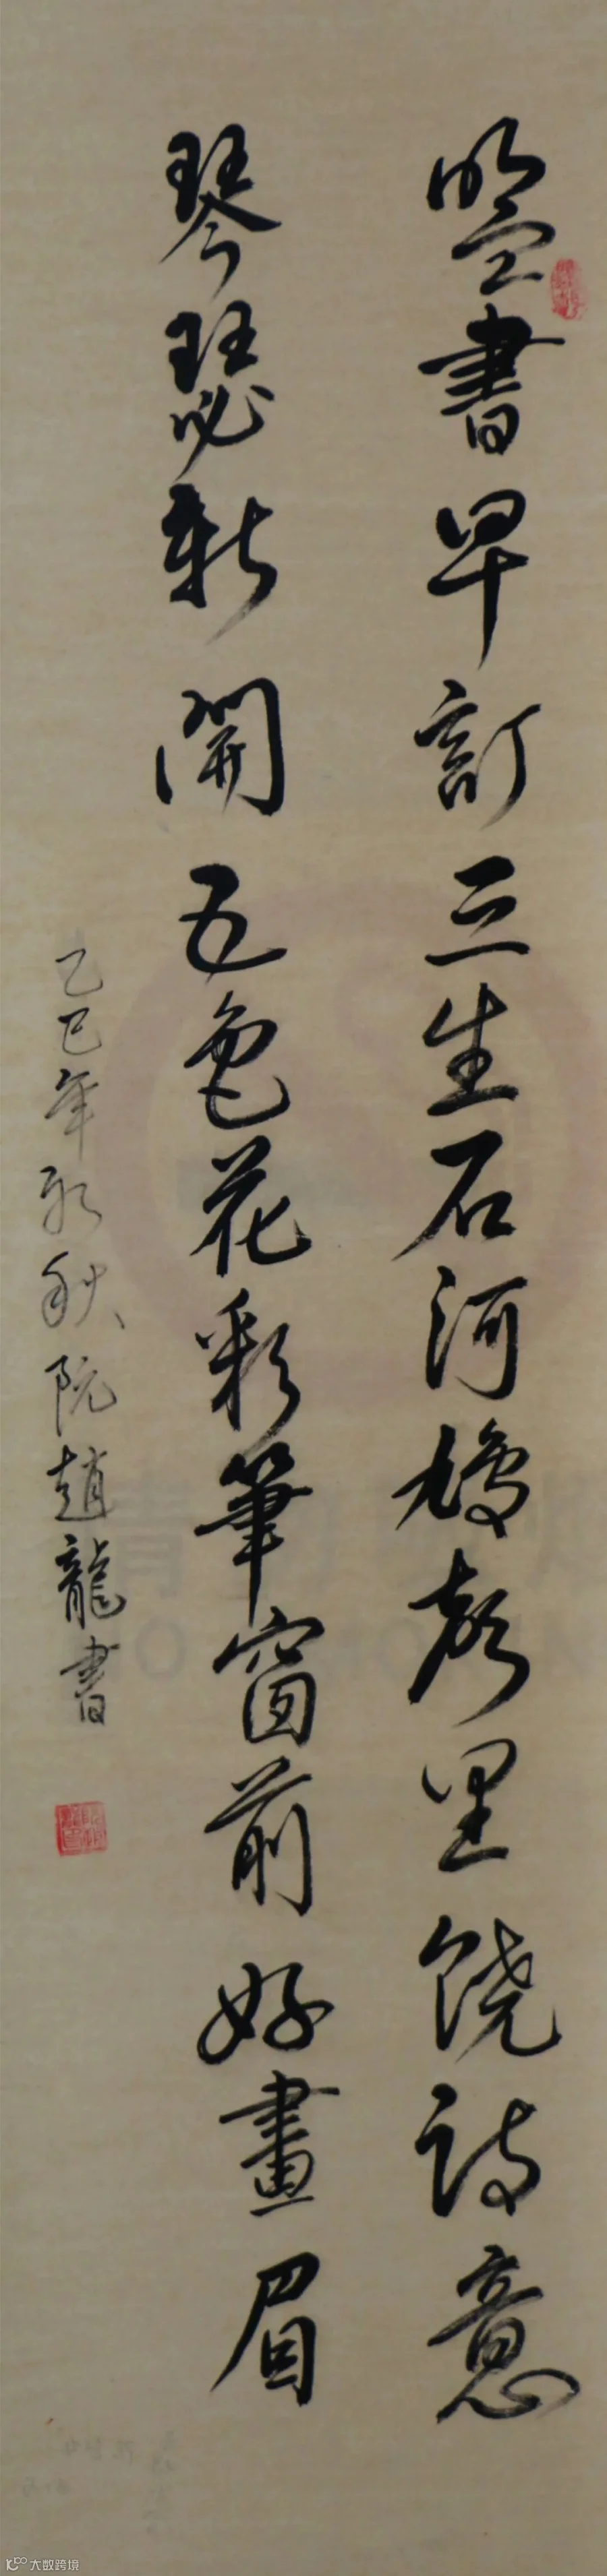 盟書早訂三生石河鳩聲里饒詩意
琴瑟新開五色花彩筆窗前好畫眉
乙巳年初秋阮趙龍書
大数跨境